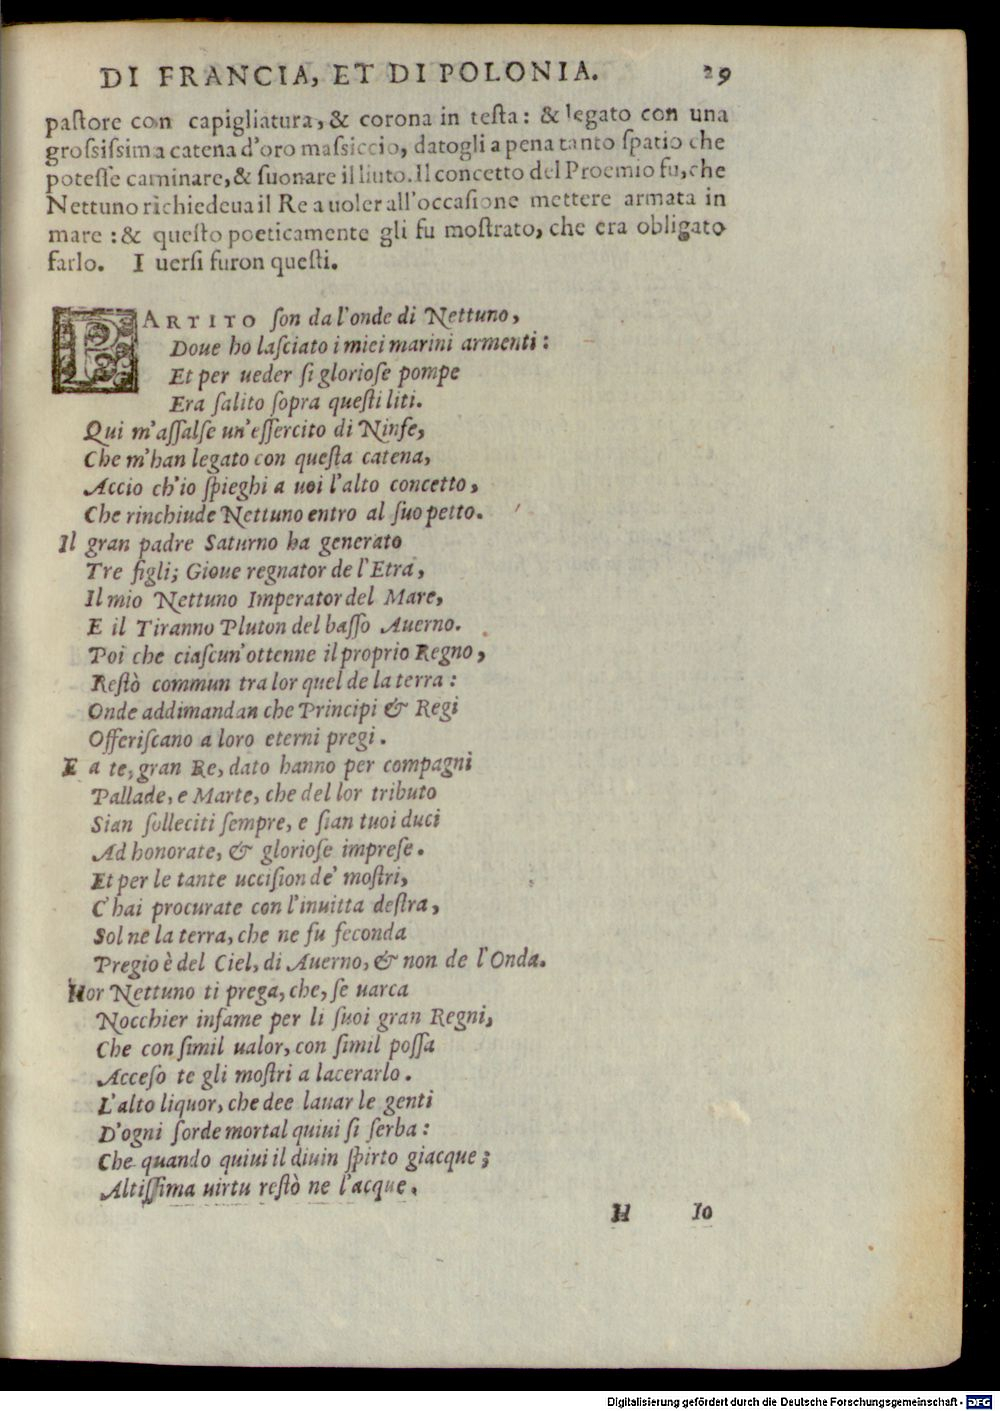 DI FRANCIA, ET DI POLONIA. 29
paſtore con capigliatura, & corona in teſta: & legato con una
groſsiſsima catena d'oro maſsiccio, datogli a pena tanto ſpatio che
poteſſe caminare, & ſuonare il liuto. Il concetto del Proemio fu, che
Nettuno richiedeua il Re a uoler all'occaſione mettere armata in
mare: & queſto poeticamente gli fu moſtrato, che era obligato
farlo. I uerſi furon queſti.
PARTITO ſon da l'onde di Nettuno,
Doue ho laſciato i miei marini armenti:
Et per ueder ſi glorioſe pompe
Era ſalito ſopra queſti liti.
Qui m'aſſalſe un'eſſercito di Ninfe,
Che m'han legato con queſta catena,
Accio ch'io ſpieghi a uoi l'alto concetto,
Che rinchiude Nettuno entro al ſuo petto.
Il gran padre Saturno ha generato
Tre figli; Gioue regnator de l'Etra,
Il mio Nettuno Imperator del Mare,
E il Tiranno Pluton del baſſo Auerno.
Poi che ciaſcun'ottenne il proprio Regno,
Reſtò commun tra lor quel de la terra:
Onde addimandan che Principi & Regi
Offeriſcano a loro eterni pregi.
E a te, gran Re, dato hanno per compagni
Pallade, e Marte, che del lor tributo
Sian ſolleciti ſempre, e ſian tuoi duci
Ad honorate, & glorioſe impreſe.
Et per le tante ucciſion de' moſtri,
C'hai procurate con l'inuitta deſtra,
Sol ne la terra, che ne fu feconda
Pregio è del Ciel, di Auerno, & non de l'Onda.
Hor Nettuno ti prega, che, ſe uarca
Nocchier infame per li ſuoi gran Regni,
Che con ſimil ualor, con ſimil poſſa
Acceſo te gli moſtri a lacerarlo.
L'alto liquor, che dee lauar le genti
D'ogni ſorde mortal quiui ſi ſerba:
Che quando quiui il diuin ſpirto giacque;
Altiſſima uirtu reſtò ne l'acque.
H Io
Digitalisierung gefördert durch die Deutsche Forschungsgemeinschaft - DFG